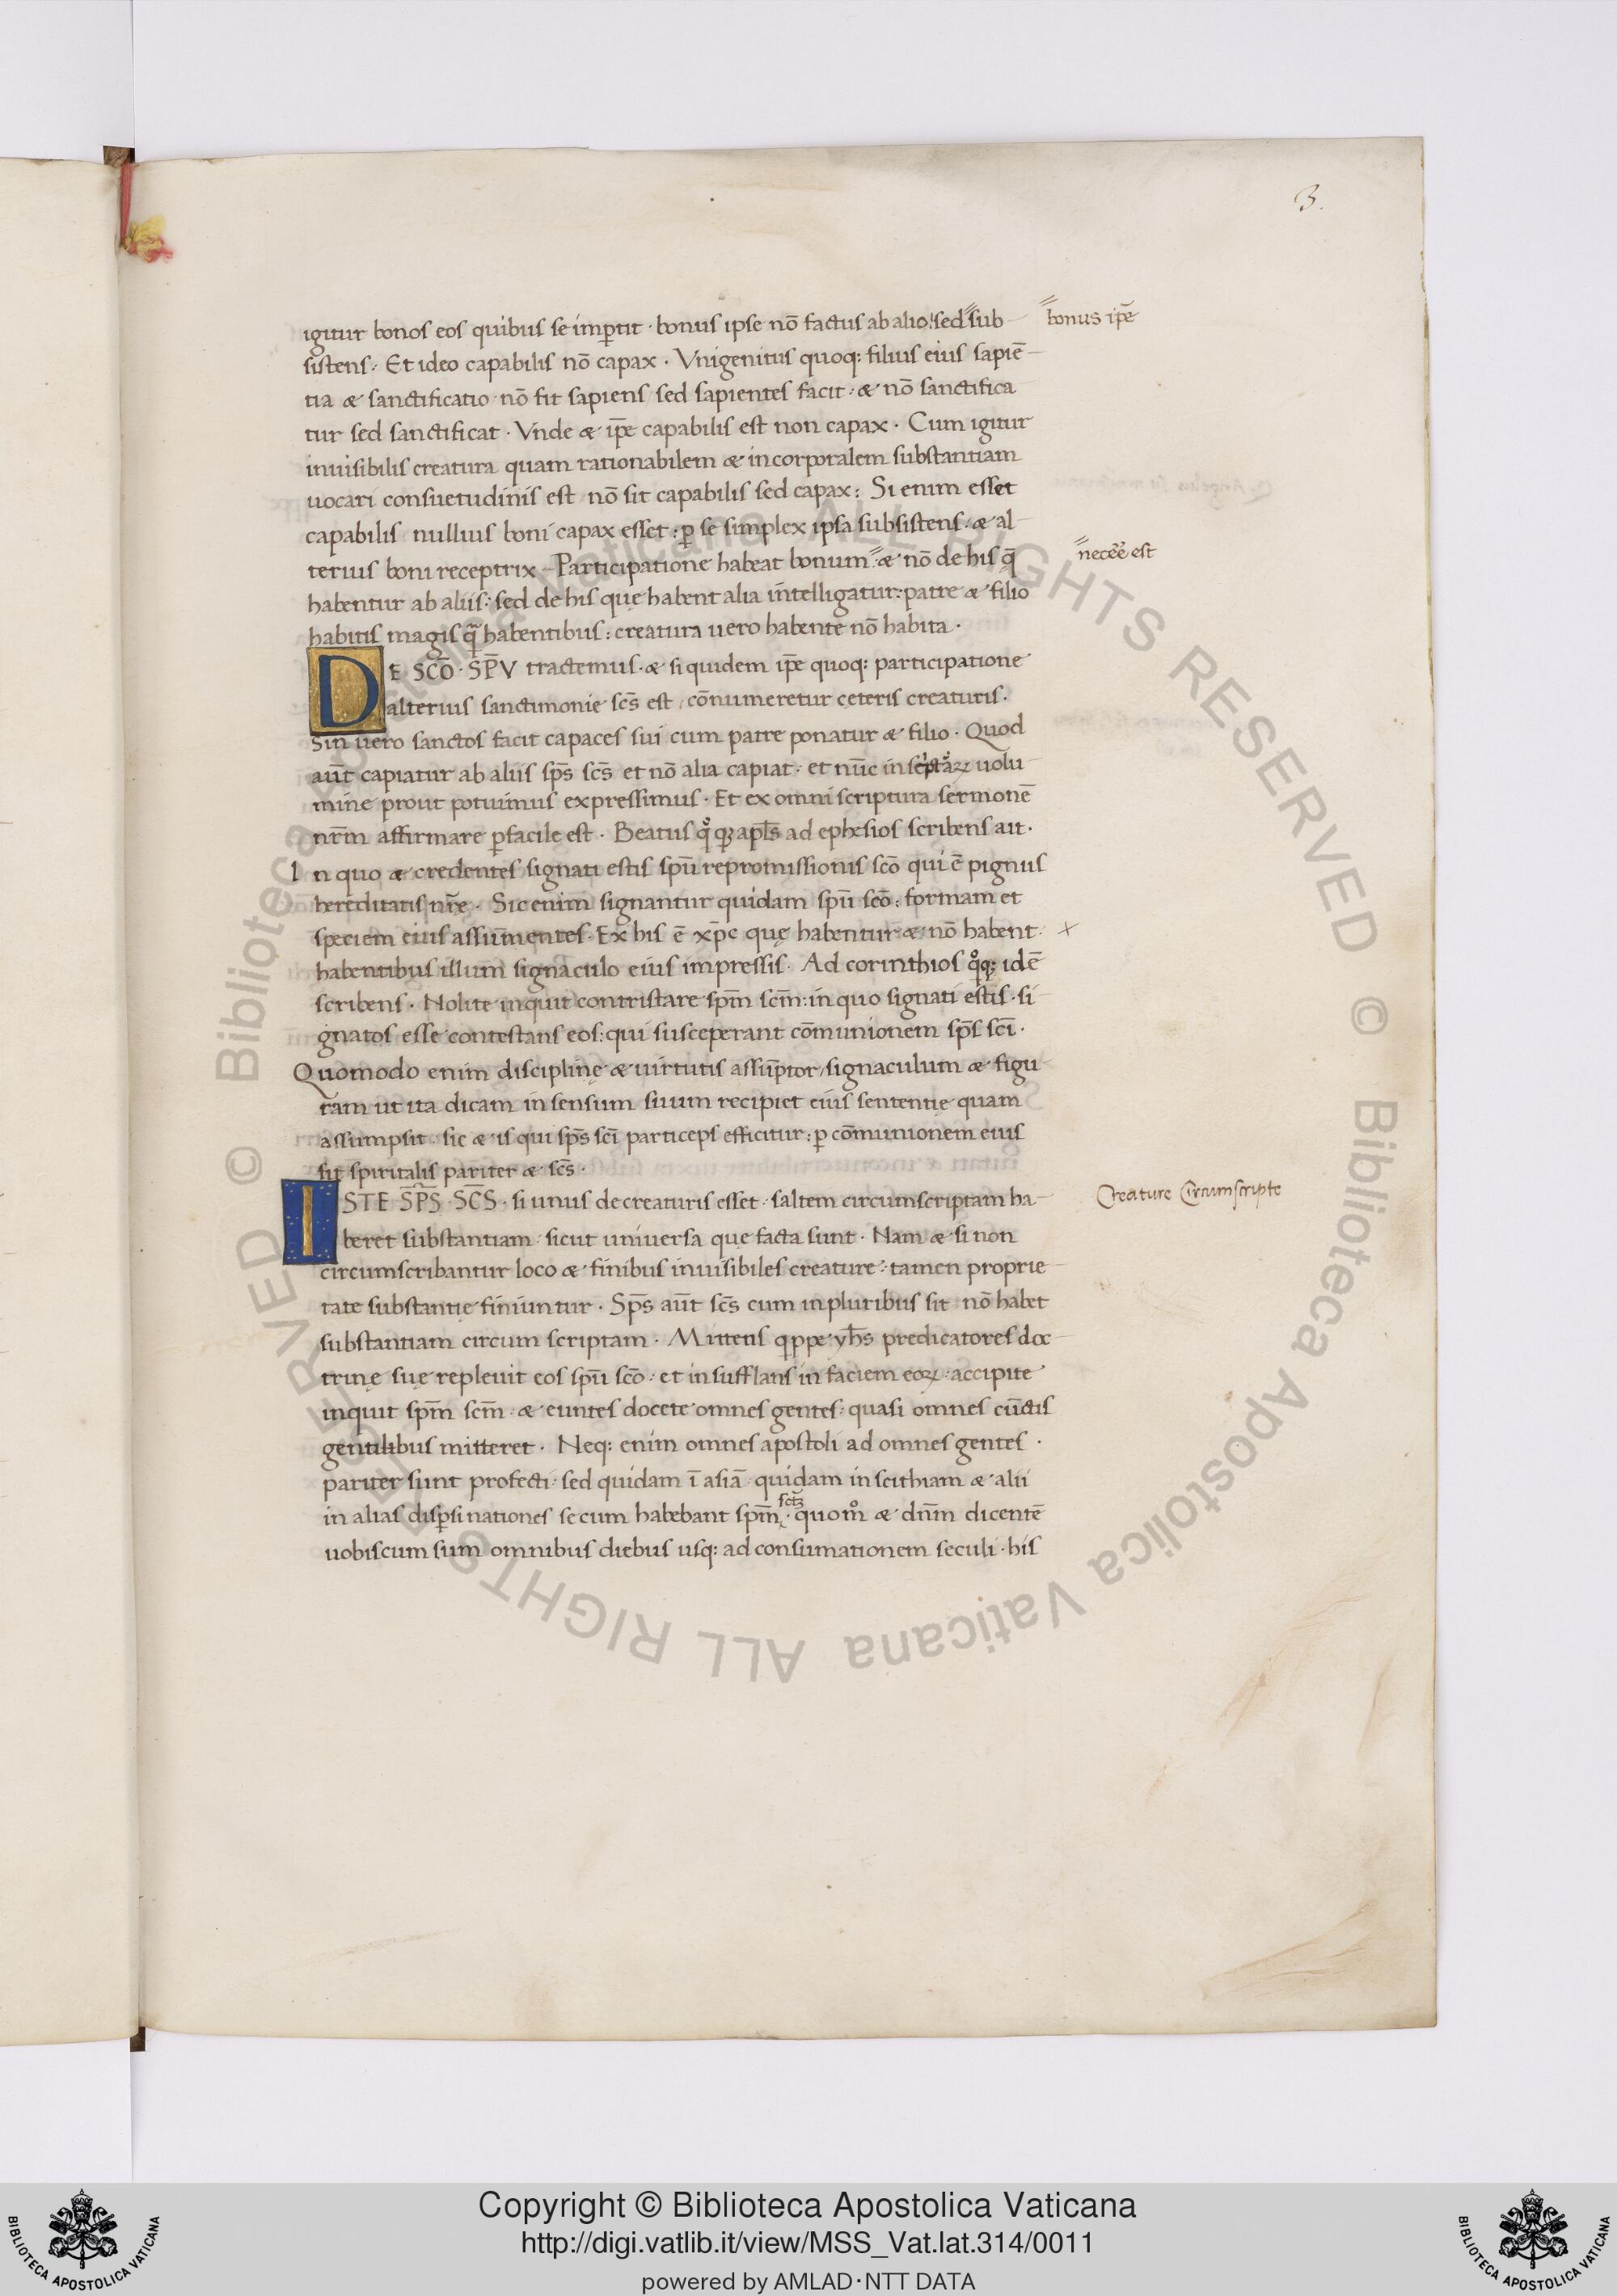 3.
igitur bonos eos quibus se imp̱tit · bonus ipse nō factus ab alio: sed sub
bonus ip̄e
sistens: Et ideo capabilis nō capax · Vnigenitus quoq: filius eius sapiē
tia & sanctificatio nō fit sapiens sed sapientes facit: & nō sanctifica
tur sed sanctificat · Vnde & ip̄e capabilis est non capax · Cum igitur
inuisibilis creatura quam rationabilem & incorporalem substantiam
uocari consuetudinis est nō sit capabilis sed capax: Si enim esset
capabilis nullius boni capax esset: ꝑ se simplex ipsa subsistens: & al
terius boni receptrix Participatione habeat bonum & nō de his q̄
necēe est
habentur ab aliis: sed de his quę habent alia intelligatur: patre & filio
habitis magis q̄ habentibus: creatura uero habente nō habita ·
DE SCŌ · SP̄V tractemus · & si quidem ip̄e quoq: participatione
alterius sanctimonie sc̄s est cōnumeretur ceteris creaturis ·
Sin uero sanctos facit capaces sui cum patre ponatur & filio · Quod
aūt capiatur ab aliis sp̄s sc̄s et nō alia capiat · et nūc in uolu
mine prout potuimus expressimus · Et ex omni scriptura sermonē
nr̄m affirmare ꝑfacile est · Beatus qͦqꝫ apl̄s ad ephesios scribens ait ·
In quo & credentes signati estis spū repromissionis scō qui ē pignus
hereditatis nr̄e · Sic enim signantur quidam spū scō: formam et
speciem eius assūmentes · Ex his ē xp̄c quę habentur & nō habent ·
x
habentibus illum signaculo eius impressis · Ad corinthios qͦqꝫ idē
scribens · Nolite inquit contristare sp̄m sc̄m: in quo signati estis · si
gnatos esse contestans eos: qui susceperant cōmunionem sp̄s sc̄i ·
Quomodo enim disciplinę & uirtutis assūptor signaculum & figu
ram ut ita dicam in sensum suum recipiet eius sententię quam
assumpsit sic & is qui sp̄s sc̄i particeps efficitur: ꝑ cōmunionem eius
fit spiritalis pariter & sc̄s ·
ISTE SP̄S · SC̄S · si unus de creaturis esset · saltem circumscriptam ha
Creature Circumscripte
beret substantiam sicut uniuersa quę facta sunt · Nam & si non
circumscribantur loco & finibus inuisibiles creature: tamen proprie
tate substantię finiuntur · Sp̄s aūt sc̄s cum in pluribus sit nō habet
substantiam circum scriptam · Mittens qippe yh̄s predicatores doc
trinę suę repleuit eos spū scō: et insufflans in faciem eoꝝ: accipite
inquit sp̄m sc̄m · & euntes docete omnes gentes: quasi omnes cūctis
gentibus mitteret · Neq: enim omnes apostoli ad omnes gentes ·
pariter sunt profecti · sed quidam ī asiā quidam in scithiam & alii
in alias disꝑsi nationes secum habebant sp̄m · quomͦ & dn̄m dicentē
uobiscum sum omnibus diebus usq: ad consumationem seculi · his
Copyright © Biblioteca Apostolica Vaticana
http://digi.vatlib.it/view/MSS_Vat.lat.314/0011
powered by AMLAD·NTT DATA
BIBLIOTECA APOSTOLICA VATICANA
BIBLIOTECA APOSTOLICA VATICANA
© Biblioteca Apostolica Vaticana ALL RIGHTS RESERVED © Biblioteca Apostolica Vaticana ALL RIGHTS RESERVED